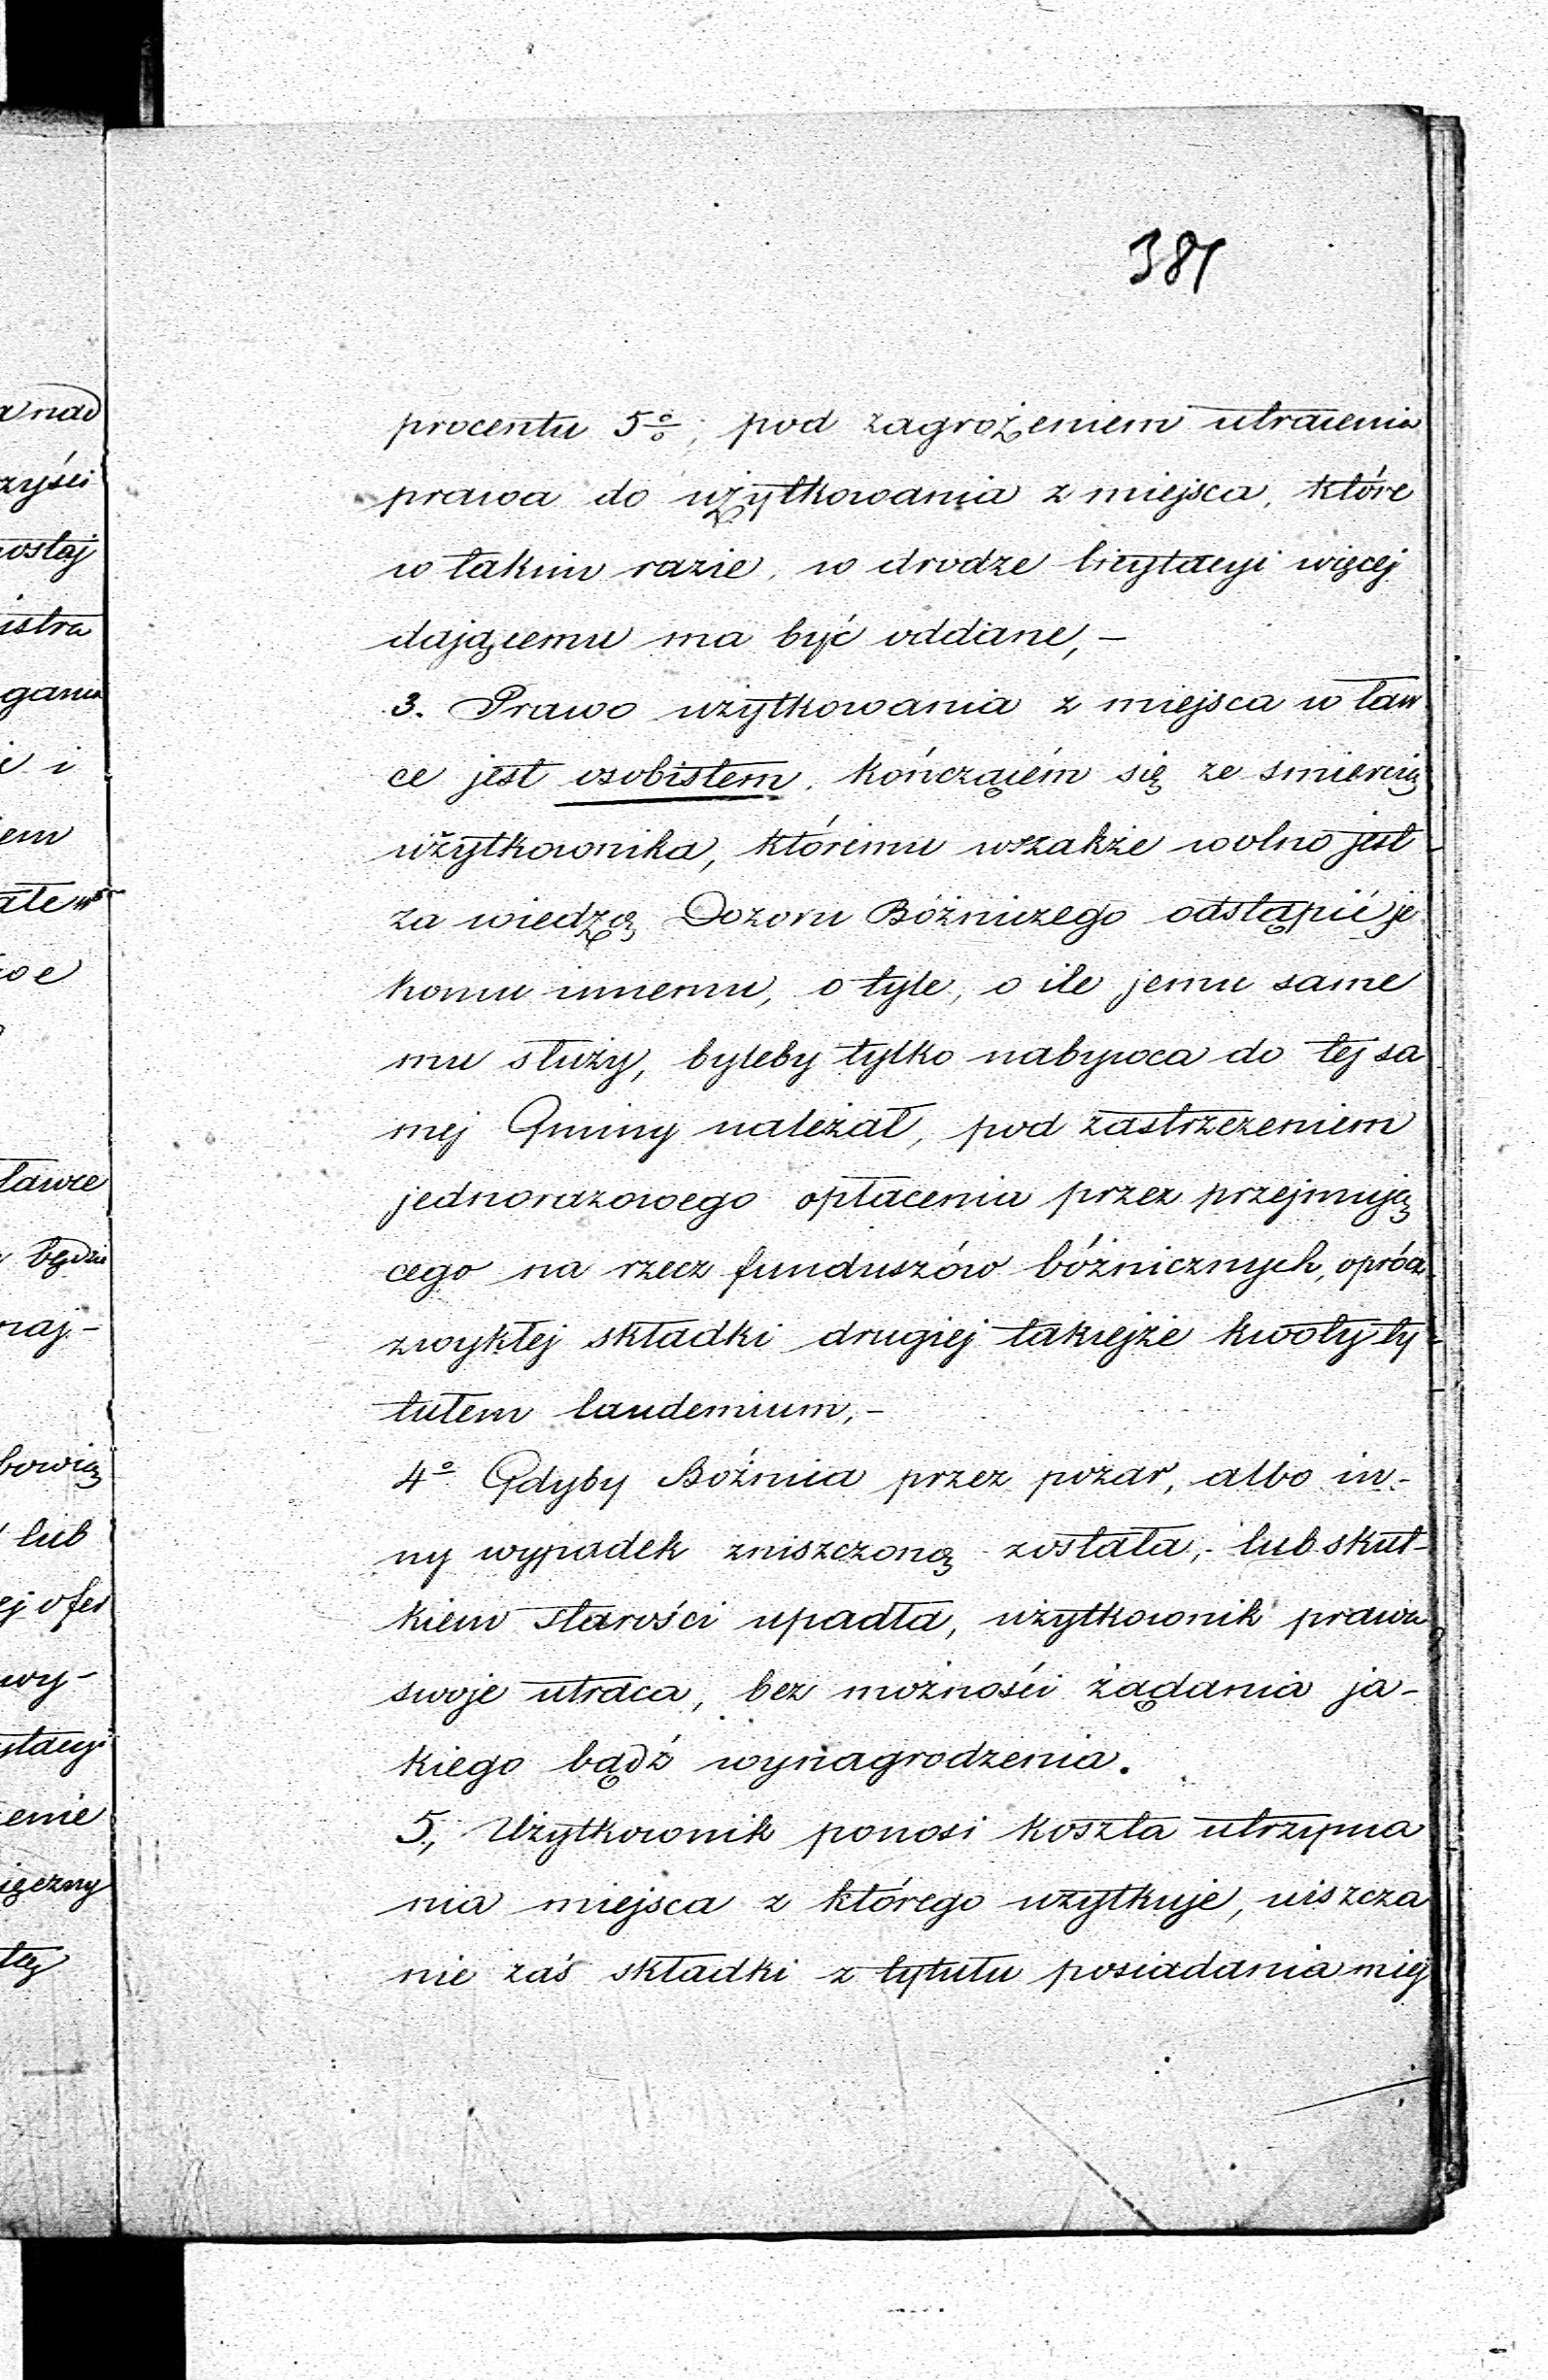 381
procentu 5%, pod zagrożeniem utracenia
prawa do użytkowania z miejsca, które
w takim razie, w drodze licytacyi więcej
dającemu ma być oddane, -
3. Prawo użytkowania z miejsca w ław
ce jest osobistem, kończącém się ze smiercią
użytkownika, któremu wszakże wolno jest
za wiedzą Dozoru Bóżniczego odstąpić je
komu innemu, o tyle, o ile jemu same
mu służy, byleby tylko nabywca do tej sa
mej Gminy należał, pod zastrzeżeniem
jednorazowego opłacenia przez przejmują
cego na rzecz funduszów bóżnicznych, oprócz
zwykłej składki drugiej takiejże kwoty ty-
tułem laudemium, -
4o Gdyby Bóżnica przez pożar, albo in-
ny wypadek zniszczoną została, - lub skut-
kiem starości upadła, użytkownik prawa
swoje utraca, bez możności żądania ja-
kiego bądź wynagrodzenia.
5, Użytkownik ponosi koszta utrzyma
nia miejsca z którego użytkuje, uiszcza
nie zaś składki z tytułu posiadania miej